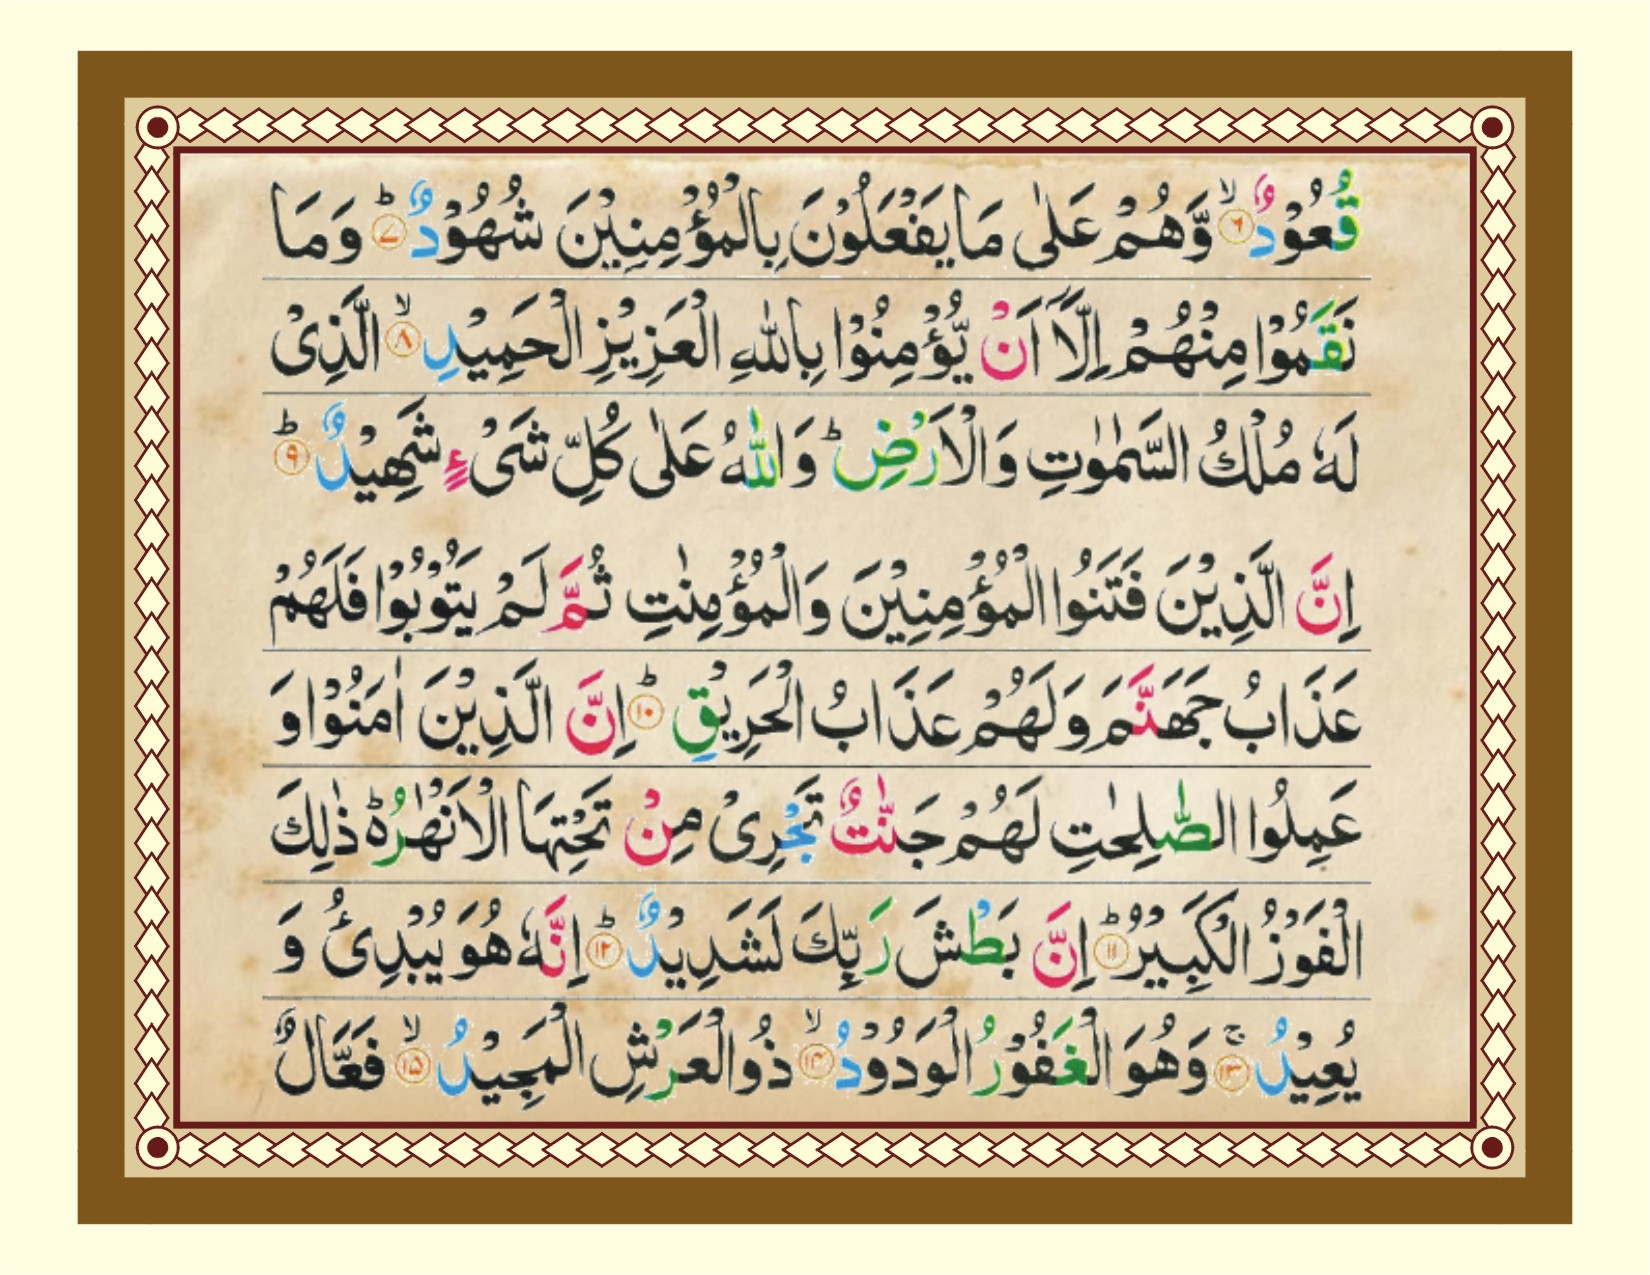 قُعُوْدٌ ۙ‏﴿۶﴾ وَّهُمْ عَلٰى مَا يَفْعَلُوْنَ بِالْمُؤْمِنِيْنَ شُهُوْدٌ ؕ‏﴿۷﴾ وَمَا
نَقَمُوْا مِنْهُمْ اِلَّاۤ اَنْ يُّؤْمِنُوْا بِاللّٰهِ الْعَزِيْزِ الْحَمِيْدِ ۙ‏﴿۸﴾ الَّذِىْ
لَهٗ مُلْكُ السَّمٰوٰتِ وَالْاَرْضِ ؕ وَاللّٰهُ عَلٰى كُلِّ شَىْءٍ شَهِيْدٌ ؕ‏﴿۹﴾
اِنَّ الَّذِيْنَ فَتَنُوا الْمُؤْمِنِيْنَ وَالْمُؤْمِنٰتِ ثُمَّ لَمْ يَتُوْبُوْا فَلَهُمْ
عَذَابُ جَهَنَّمَ وَلَهُمْ عَذَابُ الْحَرِيْقِ ؕ‏﴿۱۰﴾ اِنَّ الَّذِيْنَ اٰمَنُوْا وَ
عَمِلُوا الصّٰلِحٰتِ لَهُمْ جَنّٰتٌ تَجْرِىْ مِنْ تَحْتِهَا الْاَنْهٰرُ ؕ۬ ذٰلِكَ
الْفَوْزُ الْكَبِيْرُ ؕ‏﴿۱۱﴾ اِنَّ بَطْشَ رَبِّكَ لَشَدِيْدٌ ؕ‏﴿۱۲﴾ اِنَّهٗ هُوَ يُبْدِئُ وَ
يُعِيْدُ ۚ‏﴿۱۳﴾ وَهُوَ الْغَفُوْرُ الْوَدُوْدُ ۙ‏﴿۱۴﴾ ذُو الْعَرْشِ الْمَجِيْدُ ۙ‏﴿۱۵﴾ فَعَّالٌ